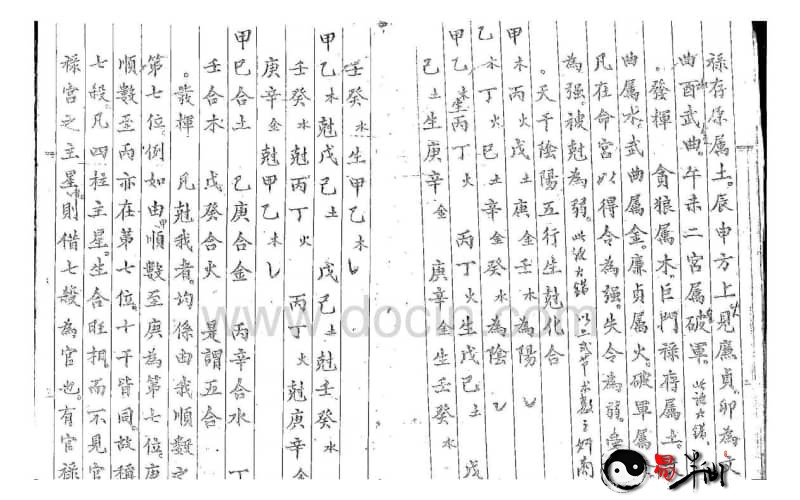 禄存原属土。辰申方上見廉貞。卯為文
曲酉武曲。午未二宮属破軍。此說大錯
。發揮　貪狼属木。巨門禄存属土。
曲属水。武曲属金。廉貞属火。破軍属
凡在命宮以得令為强。失令為弱。
為强。被尅為弱。此說大錯
。天干陰陽五行生尅化合
甲木丙火戊土庚金壬水為陽
乙木丁火己土辛金癸水為陰
甲乙木生丙丁火　丙丁火生戊己土　戊
己土生庚辛金　庚辛金生壬癸水
壬癸水生甲乙木
甲乙木尅戊己土　戊己土尅壬癸水
壬癸水尅丙丁火　丙丁火尅庚辛金
庚辛金尅甲乙木
甲己合土　乙庚合金　丙辛合水　丁
壬合木　戊癸合火　是謂五合
。發揮　凡尅我者。均係由我順數之
第七位。例如由甲順數至庚為第七位。庚
順數至丙亦在第七位。十干皆同。故稱
七殺。凡四柱主星。生合旺相。而不見官
禄宮之主星者。則借七殺為官也。有官禄
www.docin.com
易半仙